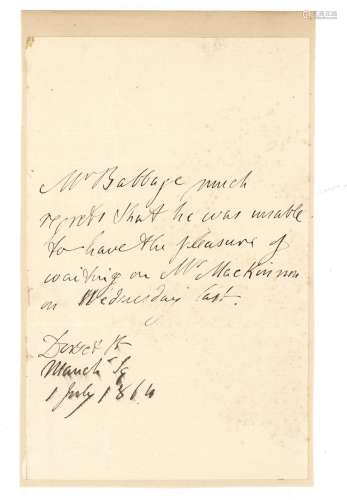 Mr Babbage much
regrets that he was unable
to have the pleasure of
waiting on Mr MacKinnon
on Wednesday last.
Dorset St
Manch Sq
1 July 1864